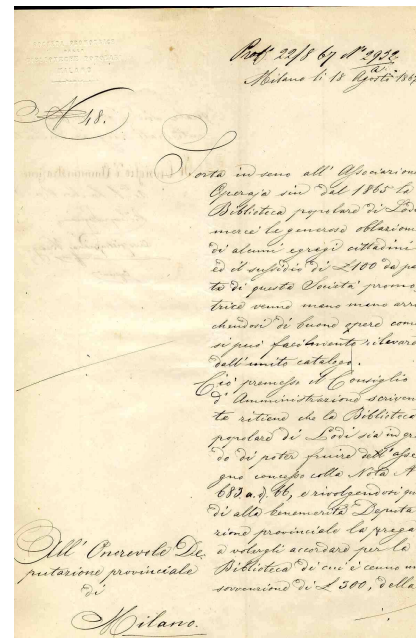 Prot. 22/8 67 N° 2932
Milano li 18 Agosto 1867
N 48.
Sorta in seno all' Associazione
Operaja sin dal 1865 la
Biblioteca popolare di Lodi
mercè le generose oblazioni
di alcuni egregi cittadini
ed il sussidio di £100 da par
te di questa Società promo
trice venne mano mano arric
chendosi di buone opere come
si può facilmente rilevare
dall'unito catalogo.
Ciò premesso il Consiglio
d'Amministrazione scriven
te ritiene che la Biblioteca
popolare di Lodi sia in gra
do di poter fruire dell'asse
gno concesso colla Nota N
683. a. d. 66, e rivolgendosi qui
di alla benemerita Deputa
zione provinciale la prega
a volergli accordare per la
Biblioteca di cui è cenno una
sovvenzione di £ 300, della
All' Onorevole De
putazione provinciale
di
Milano.